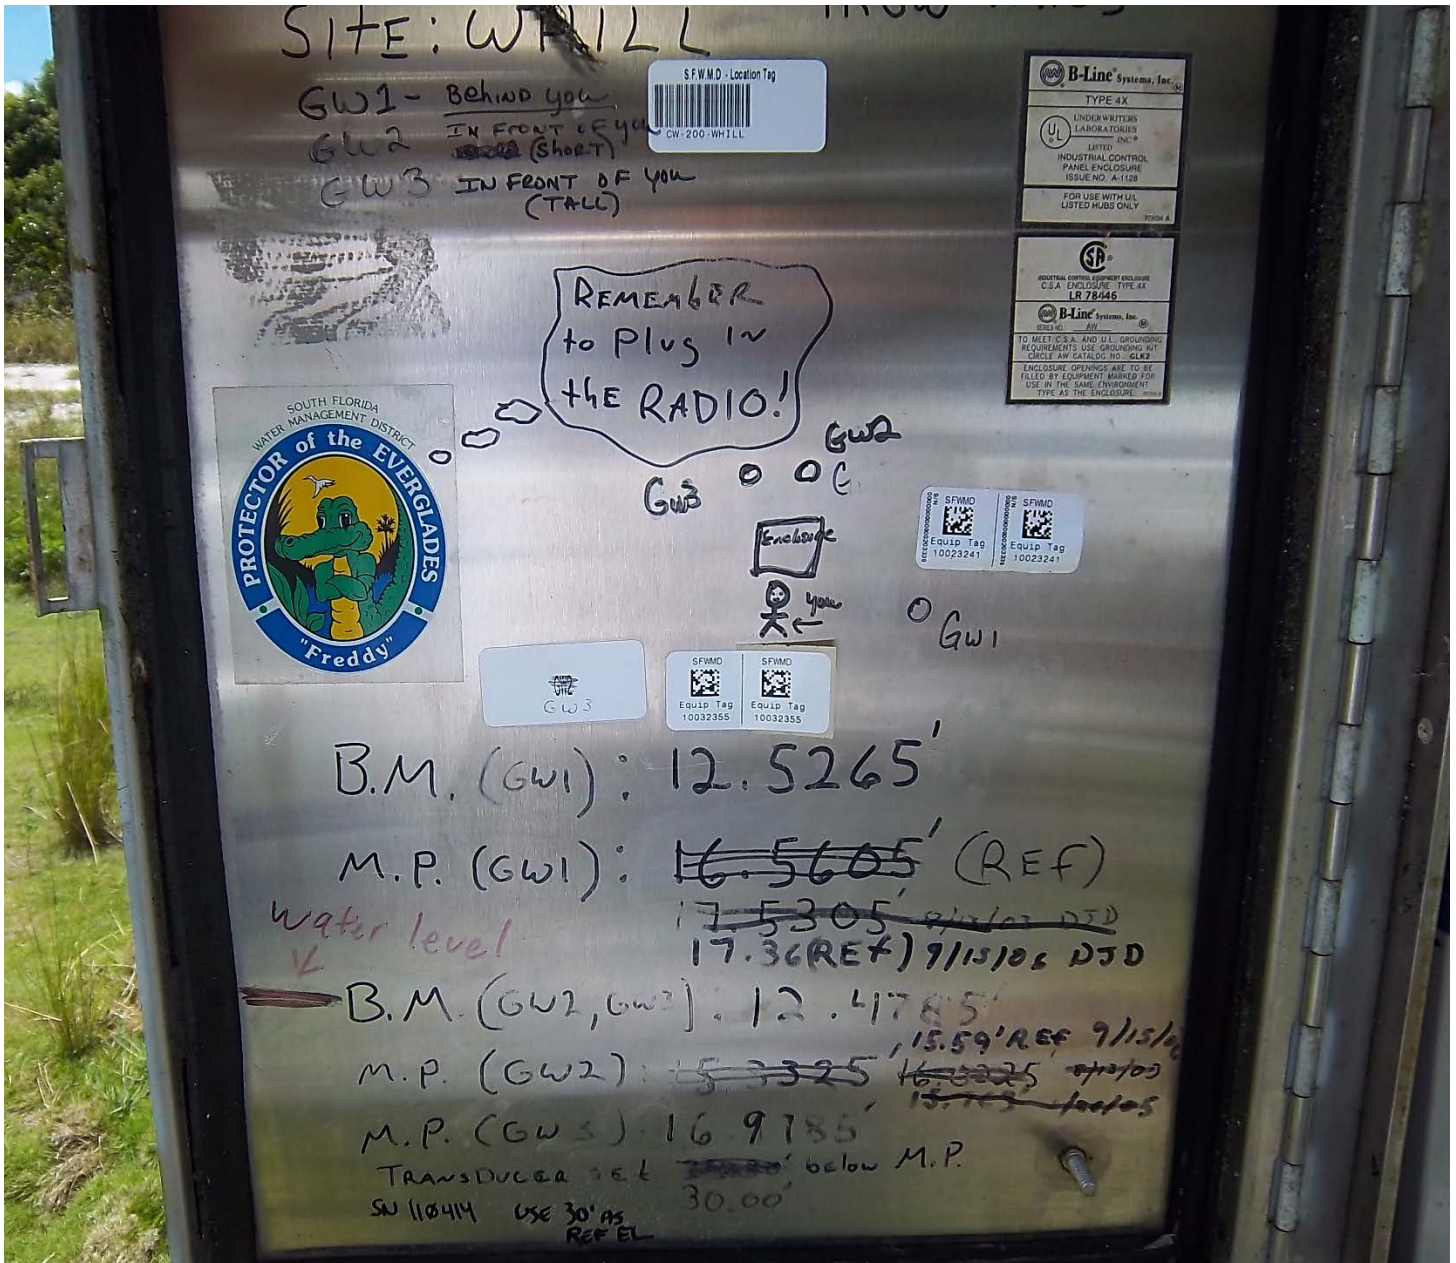 SITE: WHILL
GW1- Behind you
GW2 IN FRONT OF you
(SHORT)
GW3 IN FRONT OF you
(TALL)
S.F.W.M.D - Location Tag
CW-200-WHILL
B-Line Systems, Inc.
TYPE 4X
UL
UNDERWRITERS
LABORATORIES
INC®
LISTED
INDUSTRIAL CONTROL
PANEL ENCLOSURE
ISSUE NO. A-1128
FOR USE WITH U/L
LISTED HUBS ONLY
SA
INDUSTRIAL CONTROL EQUIPMENT ENCLOSURE
C.S.A. ENCLOSURE TYPE 4X
LR 78446
B-Line Systems, Inc.
SERIES NO. AW
TO MEET C.S.A. AND U.L. GROUNDING
REQUIREMENTS USE GROUNDING KIT
CIRCLE AW CATALOG NO. GLK2
ENCLOSURE OPENINGS ARE TO BE
FILLED BY EQUIPMENT MARKED FOR
USE IN THE SAME ENVIRONMENT
TYPE AS THE ENCLOSURE.
REMEMBER
to Plug IN
thE RADIO!
SOUTH FLORIDA
WATER MANAGEMENT DISTRICT
PROTECTOR of the EVERGLADES
"Freddy"
GW2
GW3
Enclosure
you
GW1
SFWMD
Equip Tag
10023241
SFWMD
Equip Tag
10023241
GW3
SFWMD
Equip Tag
10032355
SFWMD
Equip Tag
10032355
B.M. (GW1): 12.5265'
M.P. (GW1): 16.5605' (REF)
17.5305' 8/13/03 DJD
17.36(REF) 9/15/06 DJD
Water level
B.M. (GW2, GW3): 12.4785'
15.59' REF 9/15/
M.P. (GW2): 15.3325' 16.3225 8/13/03
M.P. (GW3) 16.9785'
TRANSDUCER SEt below M.P.
30.00'
SN 110414 USE 30' AS
REF EL